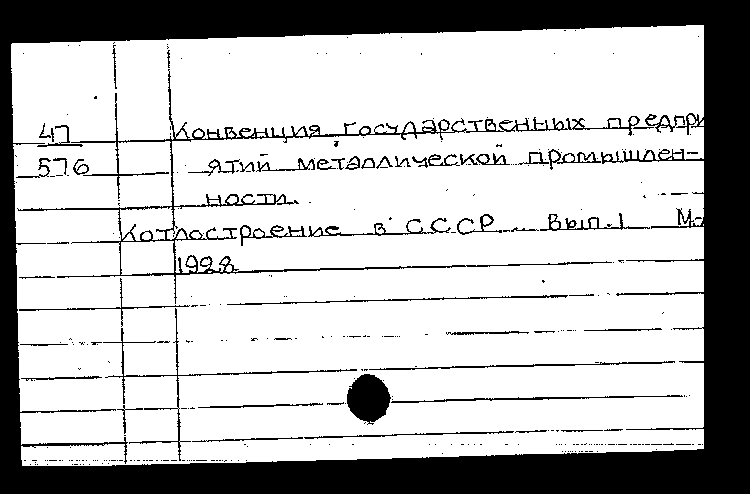 47
576
Конвенция государственных предпри
ятий металлической промышлен-
ности.
Котлостроение в СССР Вып.1
1928